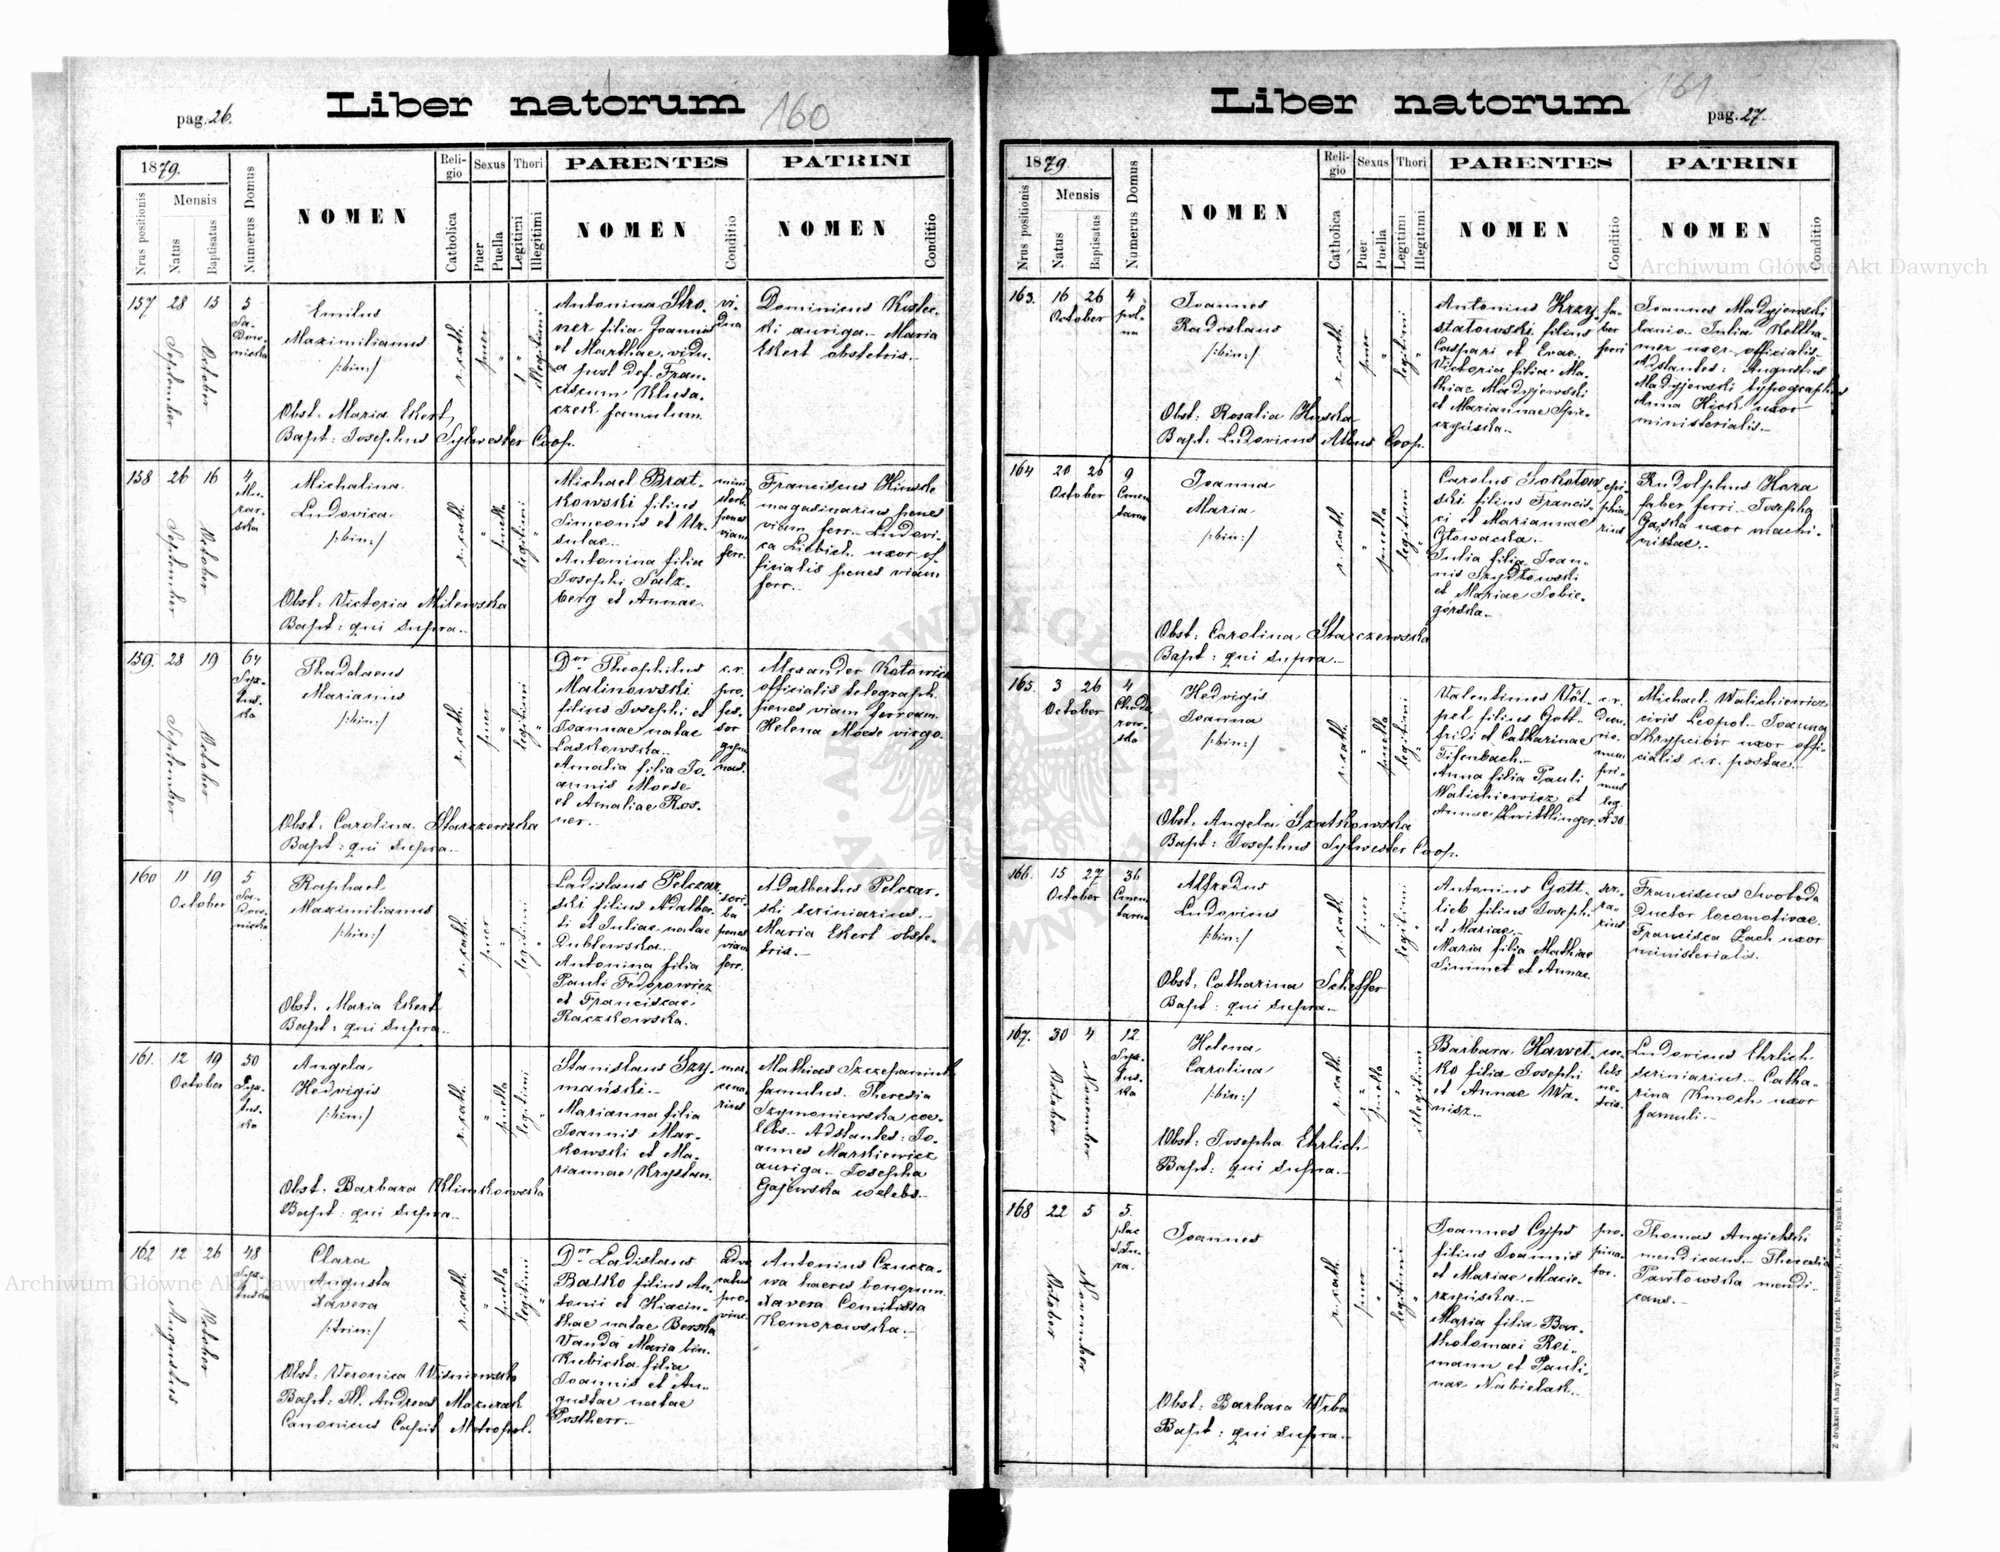 pag. 26.
Liber natorum
160
1879.
Mensis
Nrus positionis
Natus
Baptisatus
Numerus Domus
NOMEN
Religio
Catholica
Sexus
Puer
Puella
Thori
Legitimi
Illegitimi
PARENTES
NOMEN
Conditio
PATRINI
NOMEN
Conditio
157
28
September
15
October
5
Sa-
dow-
nicka
Emilus
Maximilianus
/:bin:/
Obst: Maria Ekert
Bapt: Josephus Sylwester Coop.
r. cath.
puer
illegitimi
Antonina Stro-
ner filia Joannis
et Marthae, vidu-
a post def. Fran-
ciscum Klusa-
czek famulum.
vi-
dua
Dominicus Kostec-
ki auriga. Maria
Ekert obstetris.
158
26
September
16
October
4
Mu-
rar-
ska
Michalina
Ludovica
/:bin:/
Obst: Victoria Milewska
Bapt: qui supra.
r. cath.
puella
legitimi
Michael Brat-
kowski filius
Simeonis et Ur-
sulae.
Antonina filia
Josephi Salz-
berg et Annae.
penes
viam
ferr.
Franciscus
magasinarius penes
viam ferr. Ludovi-
ca Liebich uxor of-
ficialis penes viam
ferr.
159.
28
September
19
October
64
Syx-
tus-
ka
Thaddaeus
Marianus
/:bin:/
Obst: Carolina Starczewska
Bapt: qui supra.
r. cath.
puer
legitimi
Dor Theophilus
Malinowski
filius Josephi et
Joannae natae
Laskowska.
Amalia filia Jo-
annis Moese
et Amaliae Ros-
ner.
c.r.
pro-
fes-
sor
gymn
Alexander Kotowicz
officialis telegraph.
penes viam ferream.
Helena Moese virgo.
160
11
19
October
5
Sa-
dow-
nicka
Raphael
Maximilianus
/:bin:/
Obst. Maria Ekert
Bapt: qui supra.
r. cath.
puer
legitimi
Ladislaus Pelczar-
ski filius Adalber-
ti et Juliae natae
Dublewska.
Antonina filia
Pauli Fedorowicz
et Franciscae
Raczkowska.
scri-
ba
penes
viam
ferr.
Adalbertus Pelczar-
ski scriniarius.
Maria Ekert obste-
tris.
161.
12
19
October
50
Syx-
tus-
ka
Angela
Hedvigis
/:bin:/
Obst: Barbara Klimkowska
Bapt: qui supra.
r. cath.
puella
legitimi
Stanislaus Szy-
mański.
Marianna filia
Joannis Mar-
kowski et Ma-
riannae Krystan.
mer-
cena-
rius
Mathias Szczepaniuk
famulus. Theresia
Szymoniewska coe-
lebs. Adstantes: Jo-
annes Markiewicz
auriga. Josepha
Gajewska coelebs.
162
12
Augustus
26
October
48
Clara
Augusta
Xavera
/:trin:/
Obst: Veronica Wisniewska
Bapt: Ill. Andreas Mazurak
Canonicus Capit Metropol.
r. cath.
puella
legitimi
Dor Ladislaus
Balko filius An-
tonii et Hiacin-
thae natae Berska
Vanda Maria bin.
Kubicka filia
Joannis et Au-
gustae natae
Postherr.
advo
catus
pro-
vinc.
Antonius Czucza-
wa haeres bonorum.
Xavera Comitissa
Komorowska.
Liber natorum
161
pag. 27.
1879.
Mensis
Nrus positionis
Natus
Baptisatus
Numerus Domus
NOMEN
Religio
Catholica
Sexus
Puer
Puella
Thori
Legitimi
Illegitimi
PARENTES
NOMEN
Conditio
PATRINI
NOMEN
Conditio
163.
16
26
October
4
pol-
na
Joannes
Radoslaus
/:bin:/
Obst: Rosalia Huska
Bapt: Ludovicus Albus Coop.
r. cath.
puer
legitimi
Antonius Krzy-
statowski filius
Caspari et Evae.
Victoria filia Ma-
thiae Madyjewski
et Mariannae Spie-
czyńska.
fa-
ber
ferri
Joannes Madyjewski
lanio. Julia Kollha-
mer uxor officialis.
Adstantes: Augustus
Madyjewski typographus
Anna Hick uxor
ministerialis.
164
20
26
October
9
Cmen
tarna
Joanna
Maria
/:bin:/
Obst: Carolina Starczewska
Bapt: qui supra.
r. cath.
puella
legitimi
Carolus Sokołow-
ski filius Francis-
ci et Mariannae
Głowacka.
Julia filia Joan-
nis Szydłowski
et Mariae Sobie-
górska.
ephi-
phia-
rius
Rudolphus Hora
faber ferri. Josepha
Gajska uxor machi-
nistae.
165.
3
26
October
4
Chodo
row-
ska
Hedvigis
Joanna
/:bin:/
Obst: Angela Szatkowska
Bapt: Josephus Sylwester Coop.
r. cath.
puella
legitimi
Valentinus Völ-
pel filius Gott-
fridi et Catharinae
Tifenbach.
Anna filia Pauli
Walichiewicz et
Annae Zwittlinger.
Michael Walichiewicz
civis Leopol. Joanna
uxor offi-
cialis c.r. postae.
166.
15
27
October
36
Cmen
tarna
Alfredus
Ludovicus
/:bin:/
Obst: Catharina Scheffer
Bapt: qui supra.
r. cath.
puer
legitimi
Antonius Gott-
lieb filius Josephi
et Mariae.
Maria filia Mathiae
Simmet et Annae.
ser-
ra-
rius
Franciscus Swoboda
ductor locomotivae.
Francisca Zach uxor
ministerialis.
167.
30
October
4
November
12
Syx-
tus-
ka
Helena
Carolina
/:bin:/
Obst: Josepha Ehrlich
Bapt: qui supra.
r. cath.
puella
illegitimi
Barbara Hawet-
ko filia Josephi
et Annae Wa-
nisz.
coe-
lebs
Ludovicus Ehrlich
scriniarius. Catha-
rina Kmoch uxor
famuli.
168
22
October
5
November
5.
plac
Joannes
Obst: Barbara Wrba
Bapt: qui supra.
r. cath.
puer
legitimi
Joannes Cyps
filius Joannis
et Mariae Macie-
rzyńska.
Maria filia Bar-
tholomaei Rei-
mann et Pauli-
nae Nabielak.
pro-
pina-
tor.
Thomas Angielski
mendicans. Theresia
Pawłowska mendi-
cans.
Z drukarni Anny Wajdowicz (przedt. Poremby), Lwów, Rynek l. 9.
Archiwum Główne Akt Dawnych
Archiwum Główne Akt Dawnych
ARCHIWUM GŁÓWNE AKT DAWNYCH